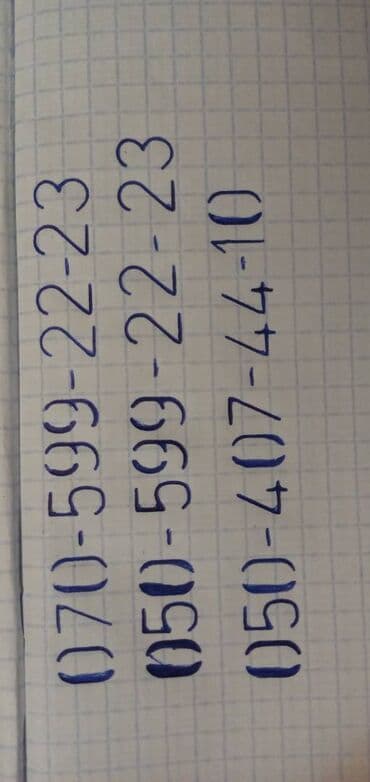 070-599-22-23
050-599-22-23
050-407-44-10